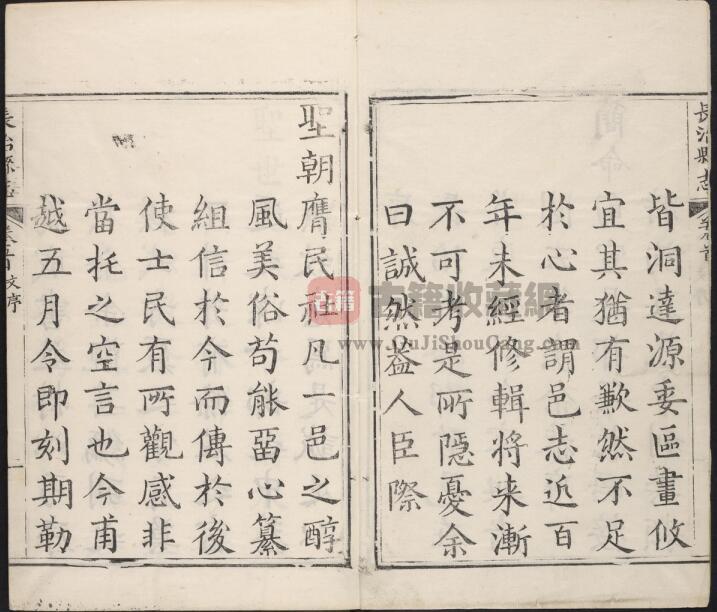 長治縣志
卷首
皆洞達源委區畫攸
宜其猶有歉然不足
於心者謂邑志近百
年未經修輯將来漸
不可考是所隱憂余
曰誠然葢人臣際
聖朝膺民社凡一邑之醇
風美俗苟能畱心纂
組信於今而傳於後
使士民有所觀感非
當托之空言也今甫
越五月令即刻期勒
長治縣志
卷首
序
一
古籍
古籍收藏網
www.GuJiShouCang.com